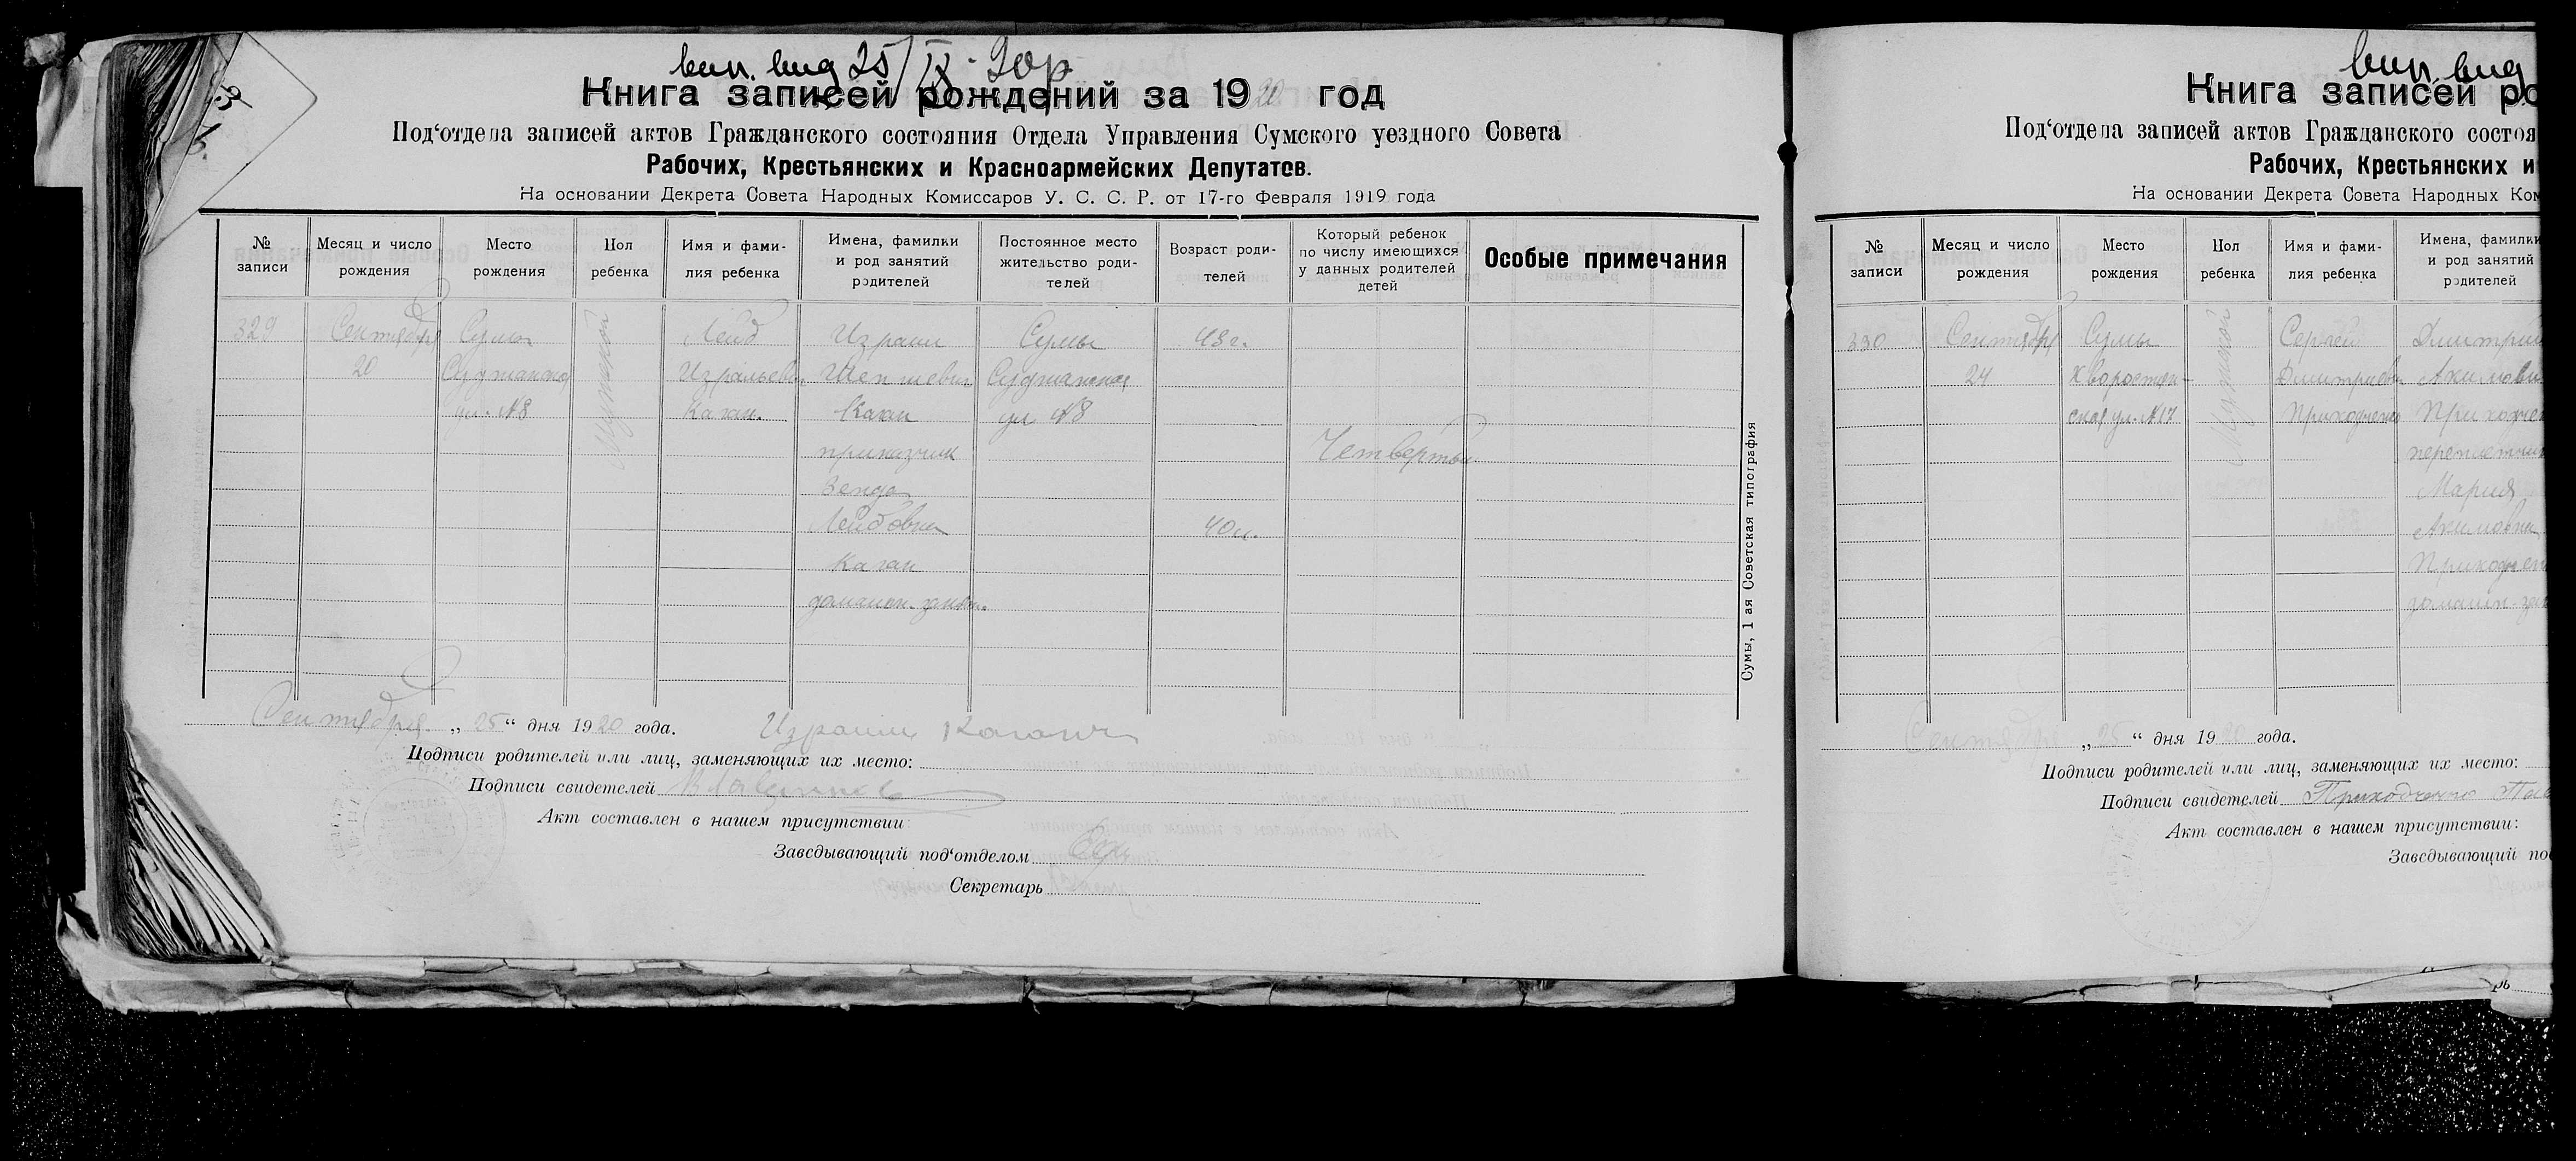 вип. вид 25/IX-20р
Книга записей рождений за 1920 год
Под‘отдела записей актов Гражданского состояния Отдела Управления Сумского уездного Совета
Рабочих, Крестьянских и Красноармейских Депутатов.
На основании Декрета Совета Народных Комиссаров У. С. С. Р. от 17-го Февраля 1919 года
№ записи
Месяц и число рождения
Место рождения
Пол ребенка
Имя и фами-
лия ребенка
Имена, фамилии
и род занятий
родителей
Постоянное место
жительство роди-
телей
Возраст роди-
телей
Который ребенок
по числу имеющихся
у данных родителей
детей
Особые примечания
329
Сентября
20
Сумы
Суджанская
ул. №8
Мужской
Лейб
Израильев.
Каган.
Израиль
Каган
приказчик
Лейбовна
Каган
домашн. занят.
Сумы
Суджанская
ул №8
48 г.
40 л.
Четвертый
Сумы, 1 ая Советская типография
Сентября „25“ дня 1920 года.
Израиль Каган
Подписи родителей или лиц, заменяющих их место:
Подписи свидетелей
Акт составлен в нашем присутствии:
Заведывающий под‘отделом
Секретарь
вип. вид
Книга записей ро
Под‘отдела записей актов Гражданского состоя
Рабочих, Крестьянских и
На основании Декрета Совета Народных Ком
№ записи
Месяц и число рождения
Место рождения
Пол ребенка
Имя и фами-
лия ребенка
Имена, фамилии
и род занятий
родителей
330
Сентября
24
Сумы
Хворостян-
ская ул. №17
Мужской
Сергей
Дмитриев
Приходченко
Дмитрий
Акимови
Приходчен
переплетчик
Мария
Акимовна
Приходчен
домашн. зан
Сентября „25“ дня 1920 года.
Подписи родителей или лиц, заменяющих их место:
Подписи свидетелей Приходченко
Акт составлен в нашем присутствии:
Заведывающий под
рь